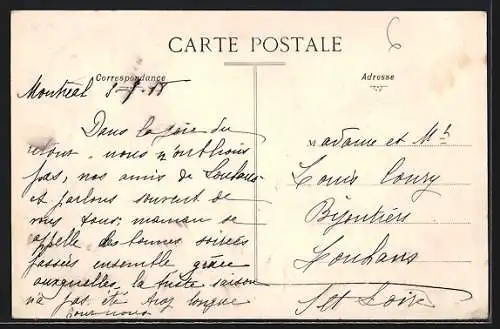 CARTE POSTALE
Correspondance
Adresse
Montréal
Dans la joie du
nous n'oublions
pas, nos amis de Louhans
et parlons souvent de
vous tous; maman se
rappelle des bonnes soirées
passées ensemble grâce
auxquelles, la triste saison
n'a pas été trop longue
pour nous
Madame et Mr
Louis Coury
Bijoutiers
Louhans
Loire